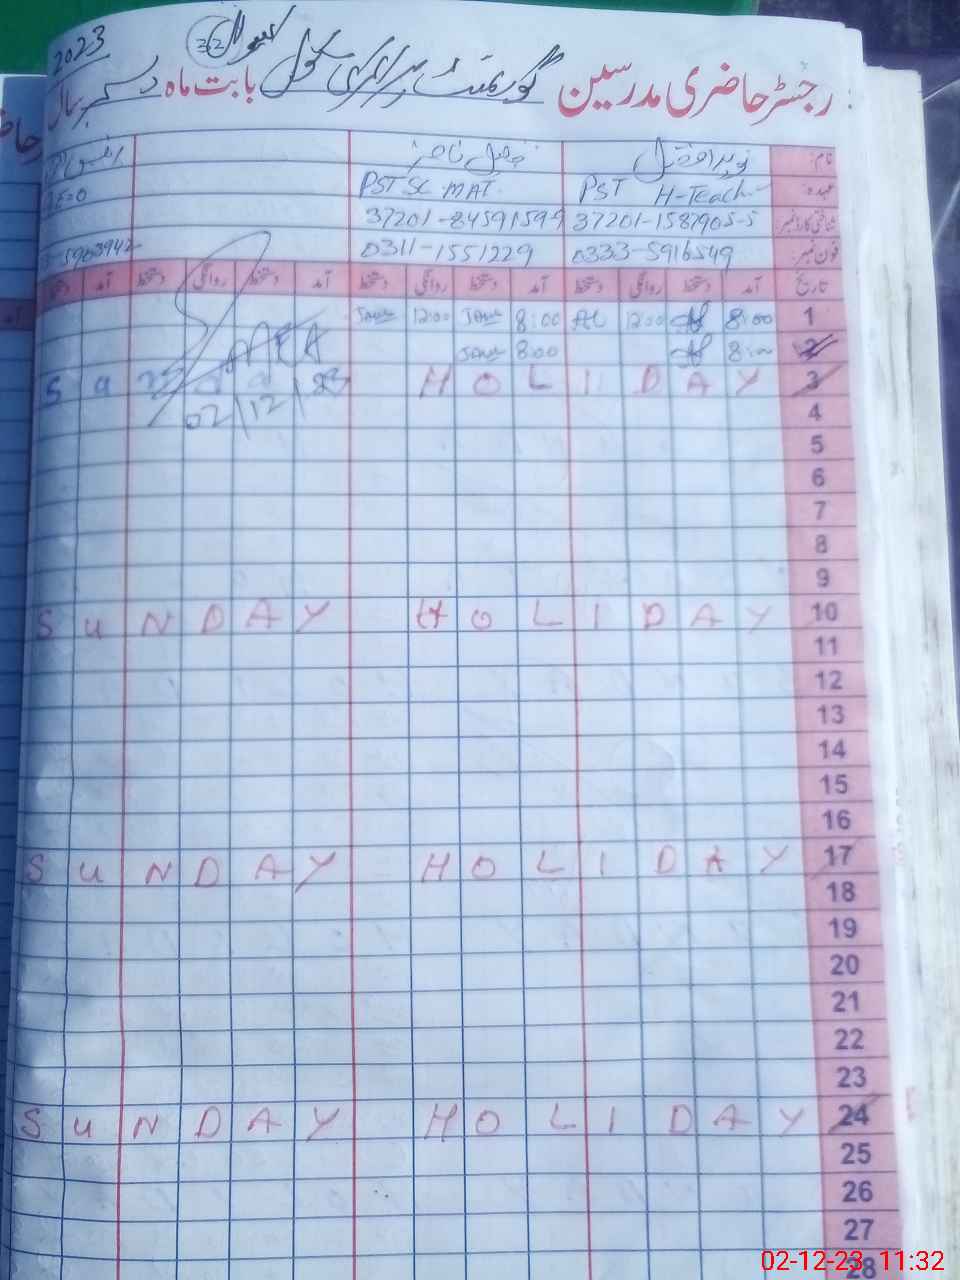 رجسٹر حاضری مدرسین گورنمنٹ پرائمری سکول بابت ماہ دسمبر سال 2023
نام:
عہدہ: PST H-Teach PST SC MAT
شناختی کارڈ نمبر 37201-1587905-5 37201-8459159-9
فون نمبر: 0333-5916549 0311-1551229
تاریخ آمد دستخط روانگی دستخط آمد دستخط روانگی دستخط آمد دستخط روانگی دستخط آمد
1 8:00 12:00 8:00 12:00
2 8:00 8:00
3 HOLIDAY
02/12/23
4
5
6
7
8
9
10 SUNDAY HOLIDAY
11
12
13
14
15
16
17 SUNDAY HOLIDAY
18
19
20
21
22
23
24 SUNDAY HOLIDAY
25
26
27
28
02-12-23 11:32